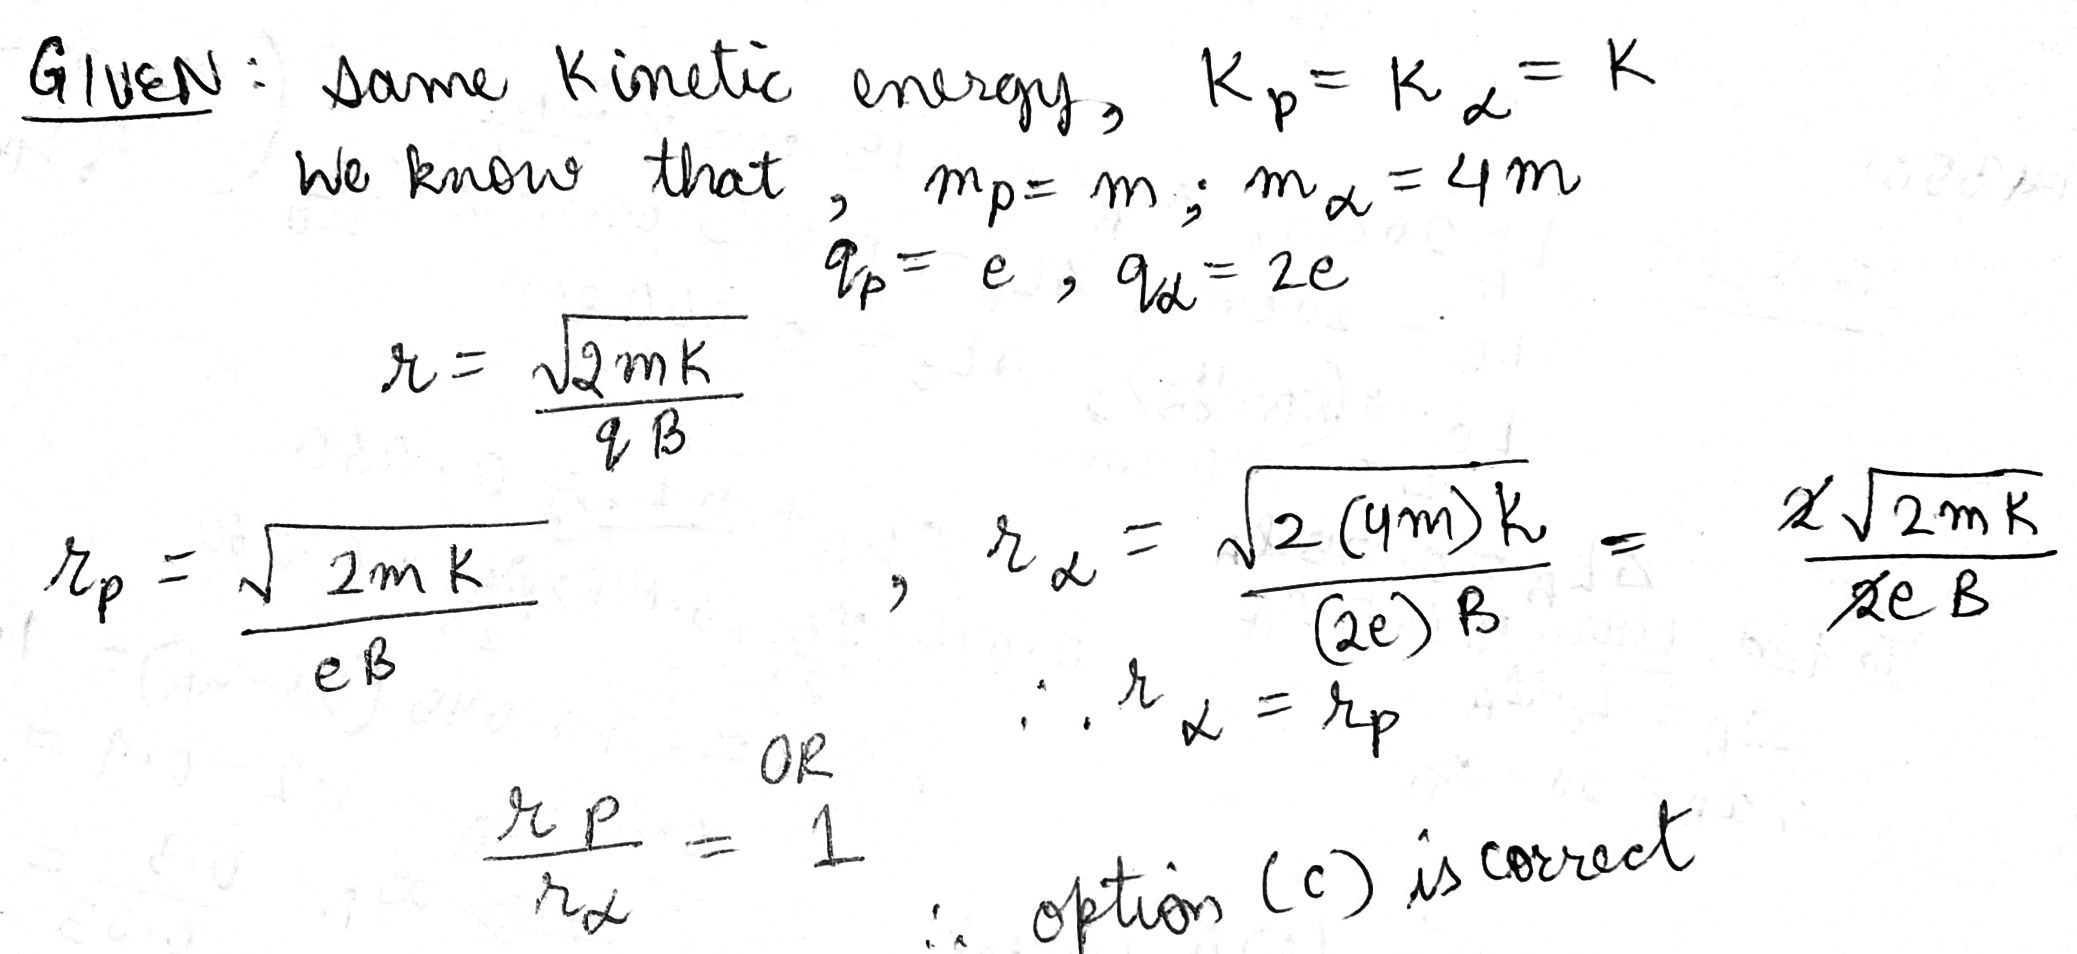 GIVEN: Same Kinetic energy, Kp = Kα = K
We know that, mp = m; mα = 4m
qp = e, qα = 2e
r = √2mK / qB
rp = √2mK / eB , rα = √2(4m)K / (2e)B = 2√2mK / 2eB
∴ rα = rp
OR
rp / rα = 1
∴ option (c) is correct